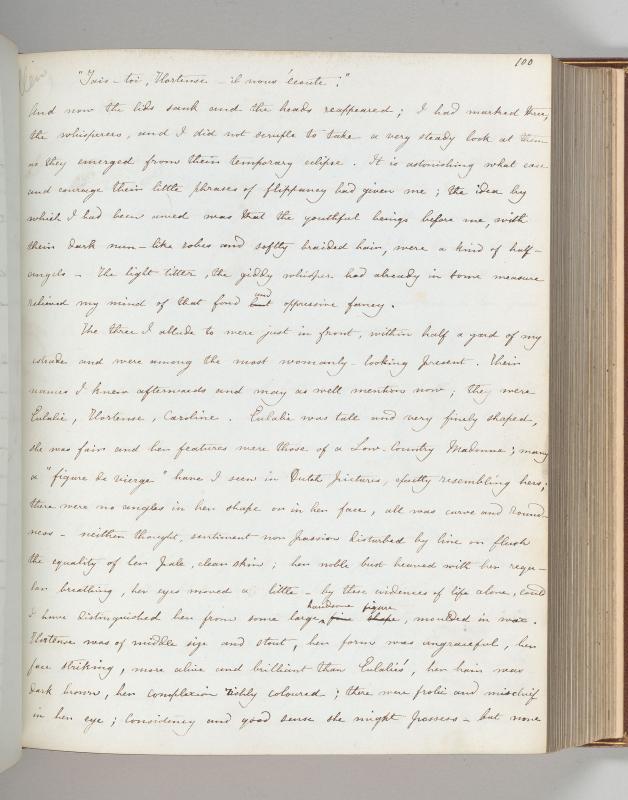 100
"Tais-toi, Hortense - il nous écoute;"
And now the lids sank and the heads reappeared; I had marked three,
the whisperers, and I did not scruple to take a very steady look at them
as they emerged from their temporary eclipse. It is astonishing what ease
and courage their little phrases of flippancy had given me; the idea by
which I had been awed was that the youthful beings before me, with
their dark nun-like robes and softly braided hair, were a kind of half-
angels - The light titter, the giddy whisper had already in some measure
relieved my mind of that fond and oppressive fancy.
The three I allude to were just in front, within half a yard of my
estrade and were among the most womanly-looking present. Their
names I knew afterwards and may as well mention now; they were
Eulalie, Hortense, Caroline. Eulalie was tall and very finely shaped,
she was fair and her features were those of a Low-Country Madonna; many
a "figure de vierge" have I seen in Dutch pictures, exactly resembling hers;
there were no angles in her shape or in her face, all was curve and round-
ness - neither thought, sentiment nor passion disturbed by line or flush
the equality of her pale, clear skin; her noble bust heaved with her regu-
lar breathing, her eyes moved a little - by these evidences of life alone, could
I have distinguished her from some large handsome figure fine shape, moulded in wax.
Hortense was of middle size and stout, her form was ungraceful, her
face striking, more alive and brilliant than Eulalie's, her hair was
dark brown, her complexion richly coloured; there were frolic and mischief
in her eye; Consistency and good sense she might possess - but none